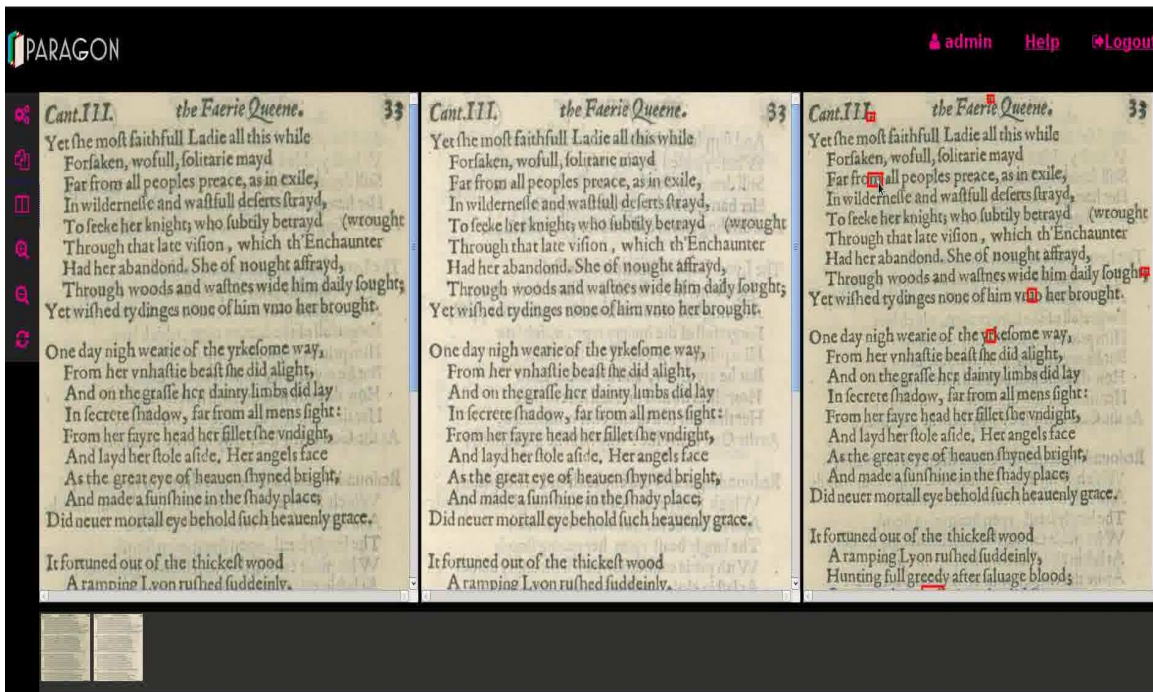 PARAGON
admin Help Logout
Cant.III. the Faerie Queene. 33
Yet ſhe moſt faithfull Ladie all this while
Forſaken, wofull, ſolitarie mayd
Far from all peoples preace, as in exile,
In wilderneſſe and waſtfull deſerts ſtrayd,
To ſeeke her knight; who ſubtily betrayd (wrought
Through that late viſion , which th'Enchaunter
Had her abandond. She of nought affrayd,
Through woods and waſtnes wide him daily ſought;
Yet wiſhed tydinges none of him vnto her brought.
One day nigh wearie of the yrkeſome way,
From her vnhaſtie beaſt ſhe did alight,
And on the graſſe her dainty limbs did lay
In ſecrete ſhadow, far from all mens ſight:
From her fayre head her fillet ſhe vndight,
And layd her ſtole aſide. Her angels face
As the great eye of heauen ſhyned bright,
And made a ſunſhine in the ſhady place;
Did neuer mortall eye behold ſuch heauenly grace.
It fortuned out of the thickeſt wood
A ramping Lyon ruſhed ſuddeinly,
Cant.III. the Faerie Queene. 33
Yet ſhe moſt faithfull Ladie all this while
Forſaken, wofull, ſolitarie mayd
Far from all peoples preace, as in exile,
In wilderneſſe and waſtfull deſerts ſtrayd,
To ſeeke her knight; who ſubtily betrayd (wrought
Through that late viſion , which th'Enchaunter
Had her abandond. She of nought affrayd,
Through woods and waſtnes wide him daily ſought;
Yet wiſhed tydinges none of him vnto her brought.
One day nigh wearie of the yrkeſome way,
From her vnhaſtie beaſt ſhe did alight,
And on the graſſe her dainty limbs did lay
In ſecrete ſhadow, far from all mens ſight:
From her fayre head her fillet ſhe vndight,
And layd her ſtole aſide. Her angels face
As the great eye of heauen ſhyned bright,
And made a ſunſhine in the ſhady place;
Did neuer mortall eye behold ſuch heauenly grace.
It fortuned out of the thickeſt wood
A ramping Lyon ruſhed ſuddeinly,
Cant.III. the Faerie Queene. 33
Yet ſhe moſt faithfull Ladie all this while
Forſaken, wofull, ſolitarie mayd
Far from all peoples preace, as in exile,
In wilderneſſe and waſtfull deſerts ſtrayd,
To ſeeke her knight; who ſubtily betrayd (wrought
Through that late viſion , which th'Enchaunter
Had her abandond. She of nought affrayd,
Through woods and waſtnes wide him daily ſought;
Yet wiſhed tydinges none of him vnto her brought.
One day nigh wearie of the yrkeſome way,
From her vnhaſtie beaſt ſhe did alight,
And on the graſſe her dainty limbs did lay
In ſecrete ſhadow, far from all mens ſight:
From her fayre head her fillet ſhe vndight,
And layd her ſtole aſide. Her angels face
As the great eye of heauen ſhyned bright,
And made a ſunſhine in the ſhady place;
Did neuer mortall eye behold ſuch heauenly grace.
It fortuned out of the thickeſt wood
A ramping Lyon ruſhed ſuddeinly,
Hunting full greedy after ſaluage blood;